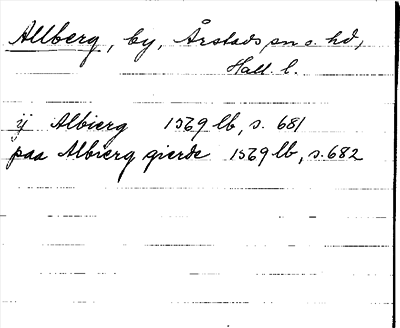 Allberg, by, Årstads sn o. hd,
Hall. l.
ij Albierg 1569 lb, s. 681
paa Albierg gierde 1569 lb, s. 682